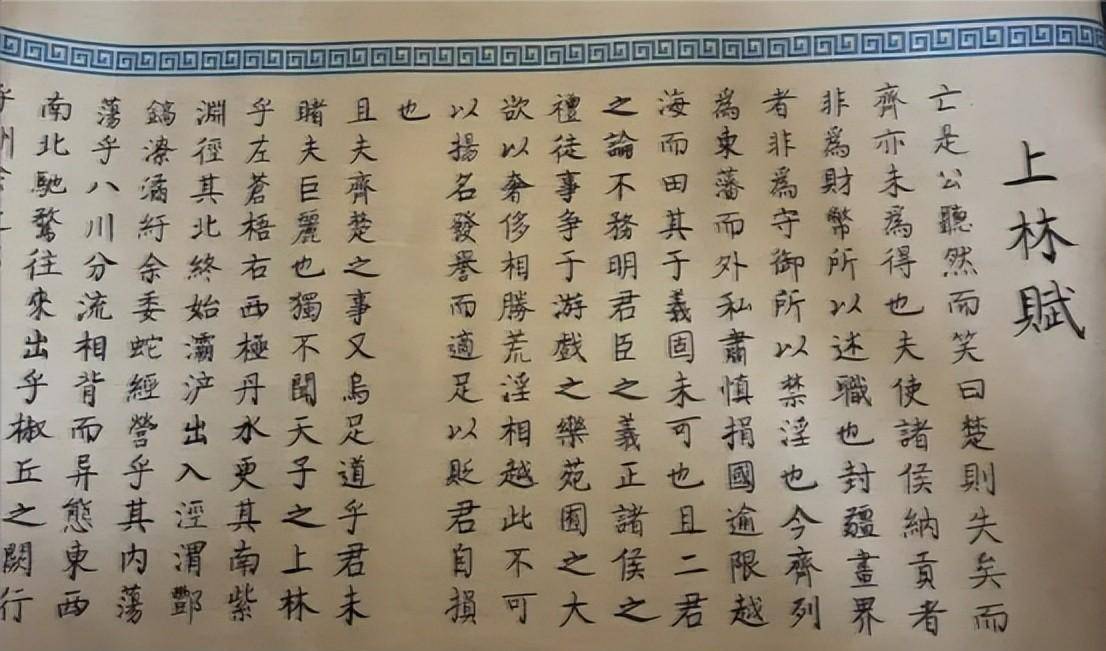 上林賦
亡是公聽然而笑曰楚則失矣而
齊亦未為得也夫使諸侯納貢者
非為財幣所以述職也封疆畫界
者非為守御所以禁淫也今齊列
為東藩而外私肅慎捐國逾限越
海而田其于義固未可也且二君
之論不務明君臣之義正諸侯之
禮徒事爭于游戲之樂苑囿之大
欲以奢侈相勝荒淫相越此不可
以揚名發譽而適足以貶君自損
也
且夫齊楚之事又烏足道乎君未
睹夫巨麗也獨不聞天子之上林
乎左蒼梧右西極丹水更其南紫
淵徑其北終始灞浐出入涇渭酆
鎬潦潏紆余委蛇經營乎其內蕩
蕩乎八川分流相背而异態東西
南北馳騖往來出乎椒丘之闕行
乎州